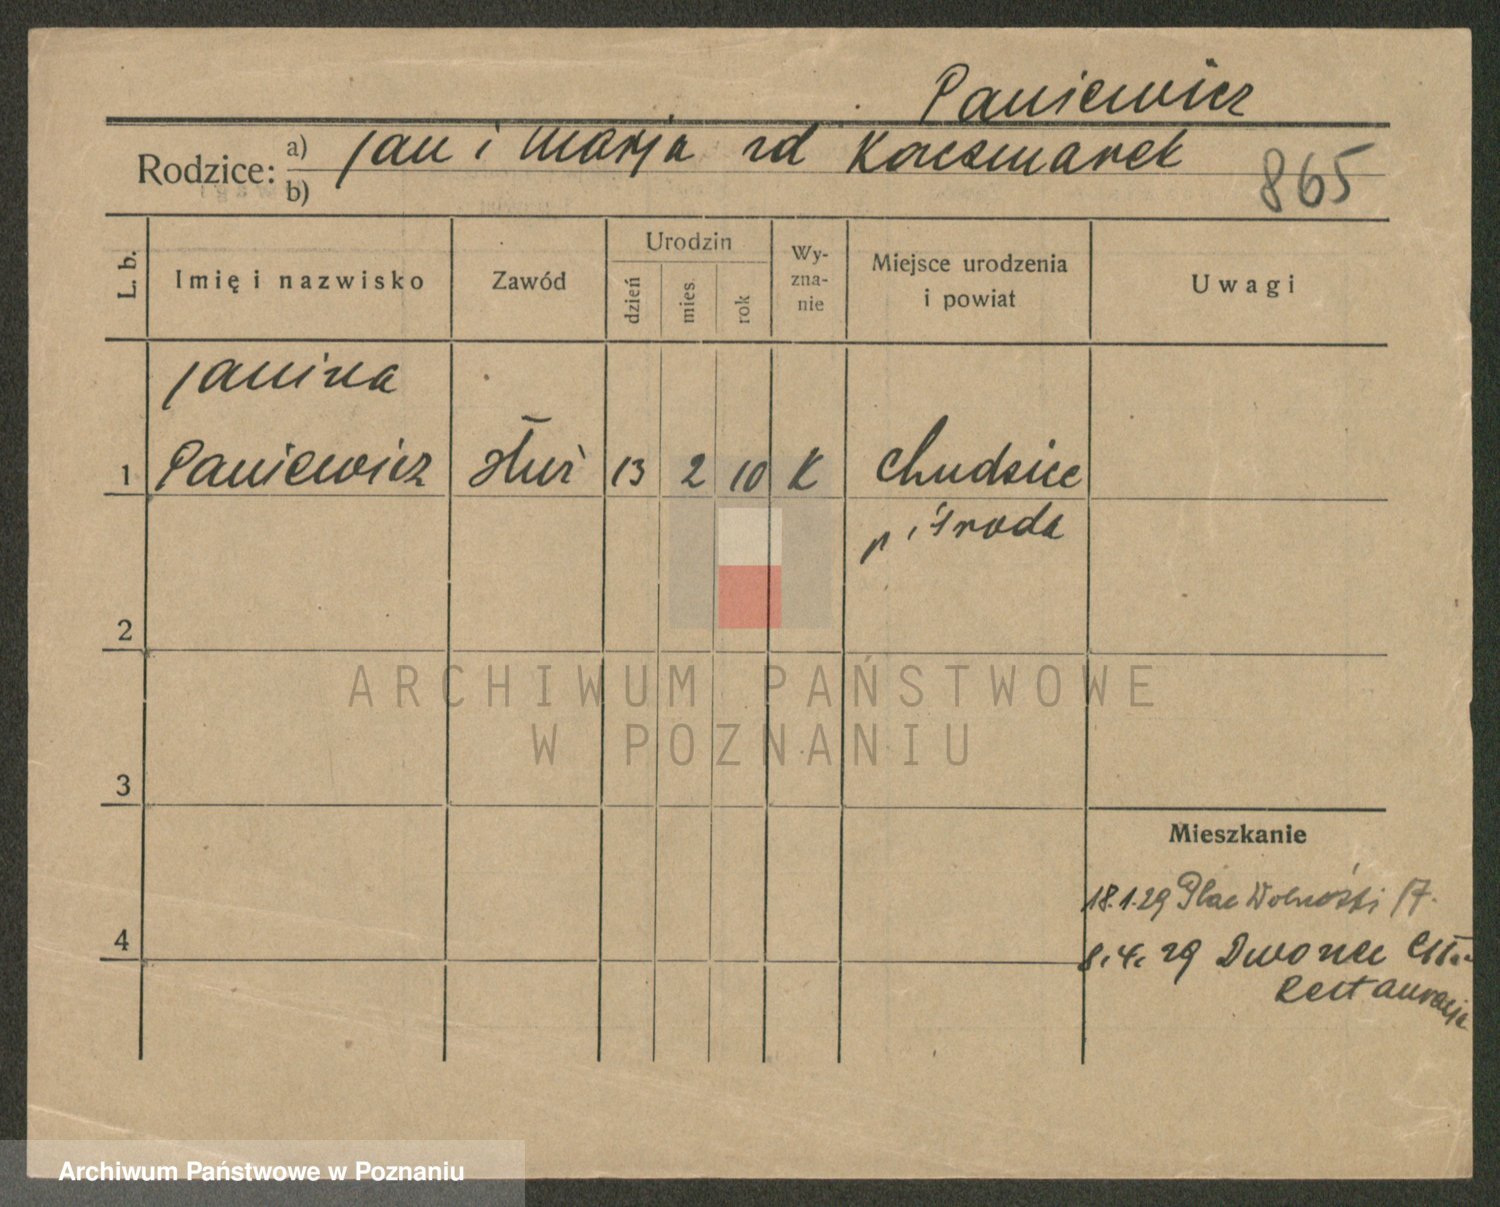 Paniewicz
Rodzice: a) Jan i Marja zd Kaczmarek
b)
865
L. b. Imię i nazwisko Zawód Urodzin dzień mies. rok Wy-zna-nie Miejsce urodzenia i powiat Uwagi
Janina
1 Paniewicz służ 13 2 10 K Chudzice
p Środa
2
ARCHIWUM PAŃSTWOWE
W POZNANIU
3
Mieszkanie
18.1.29 Plac Wolności 17.
4
8.4.29 Dworzec
Restauracja
Archiwum Państwowe w Poznaniu